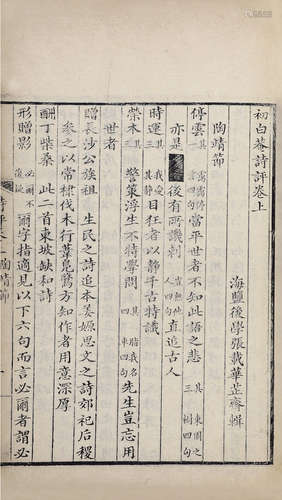 初白菴詩評卷上
海鹽後學張載華芷齋輯
陶靖節
停雲 其一 靄靄停雲四句 當平世者不知此語之悲 其三 東園之樹四句
亦是 後有所譏刺 豈無他人四句 直追古人
時運 其三 我愛其靜 目狂者以靜千古特識
榮木 其一 警策浮生不特學問 其四 脂我名車四句 先生豈忘用
世者
贈長沙公族祖 生民之詩追本姜嫄思文之詩郊祀后稷
參之以常棣伐木行葦鳧鷖方知作者用意深厚
酬丁柴桑 此二首東坡缺和詩
形贈影 必爾不復疑 爾字指適見以下六句而言必爾者謂必
詩評卷上 陶靖節 一